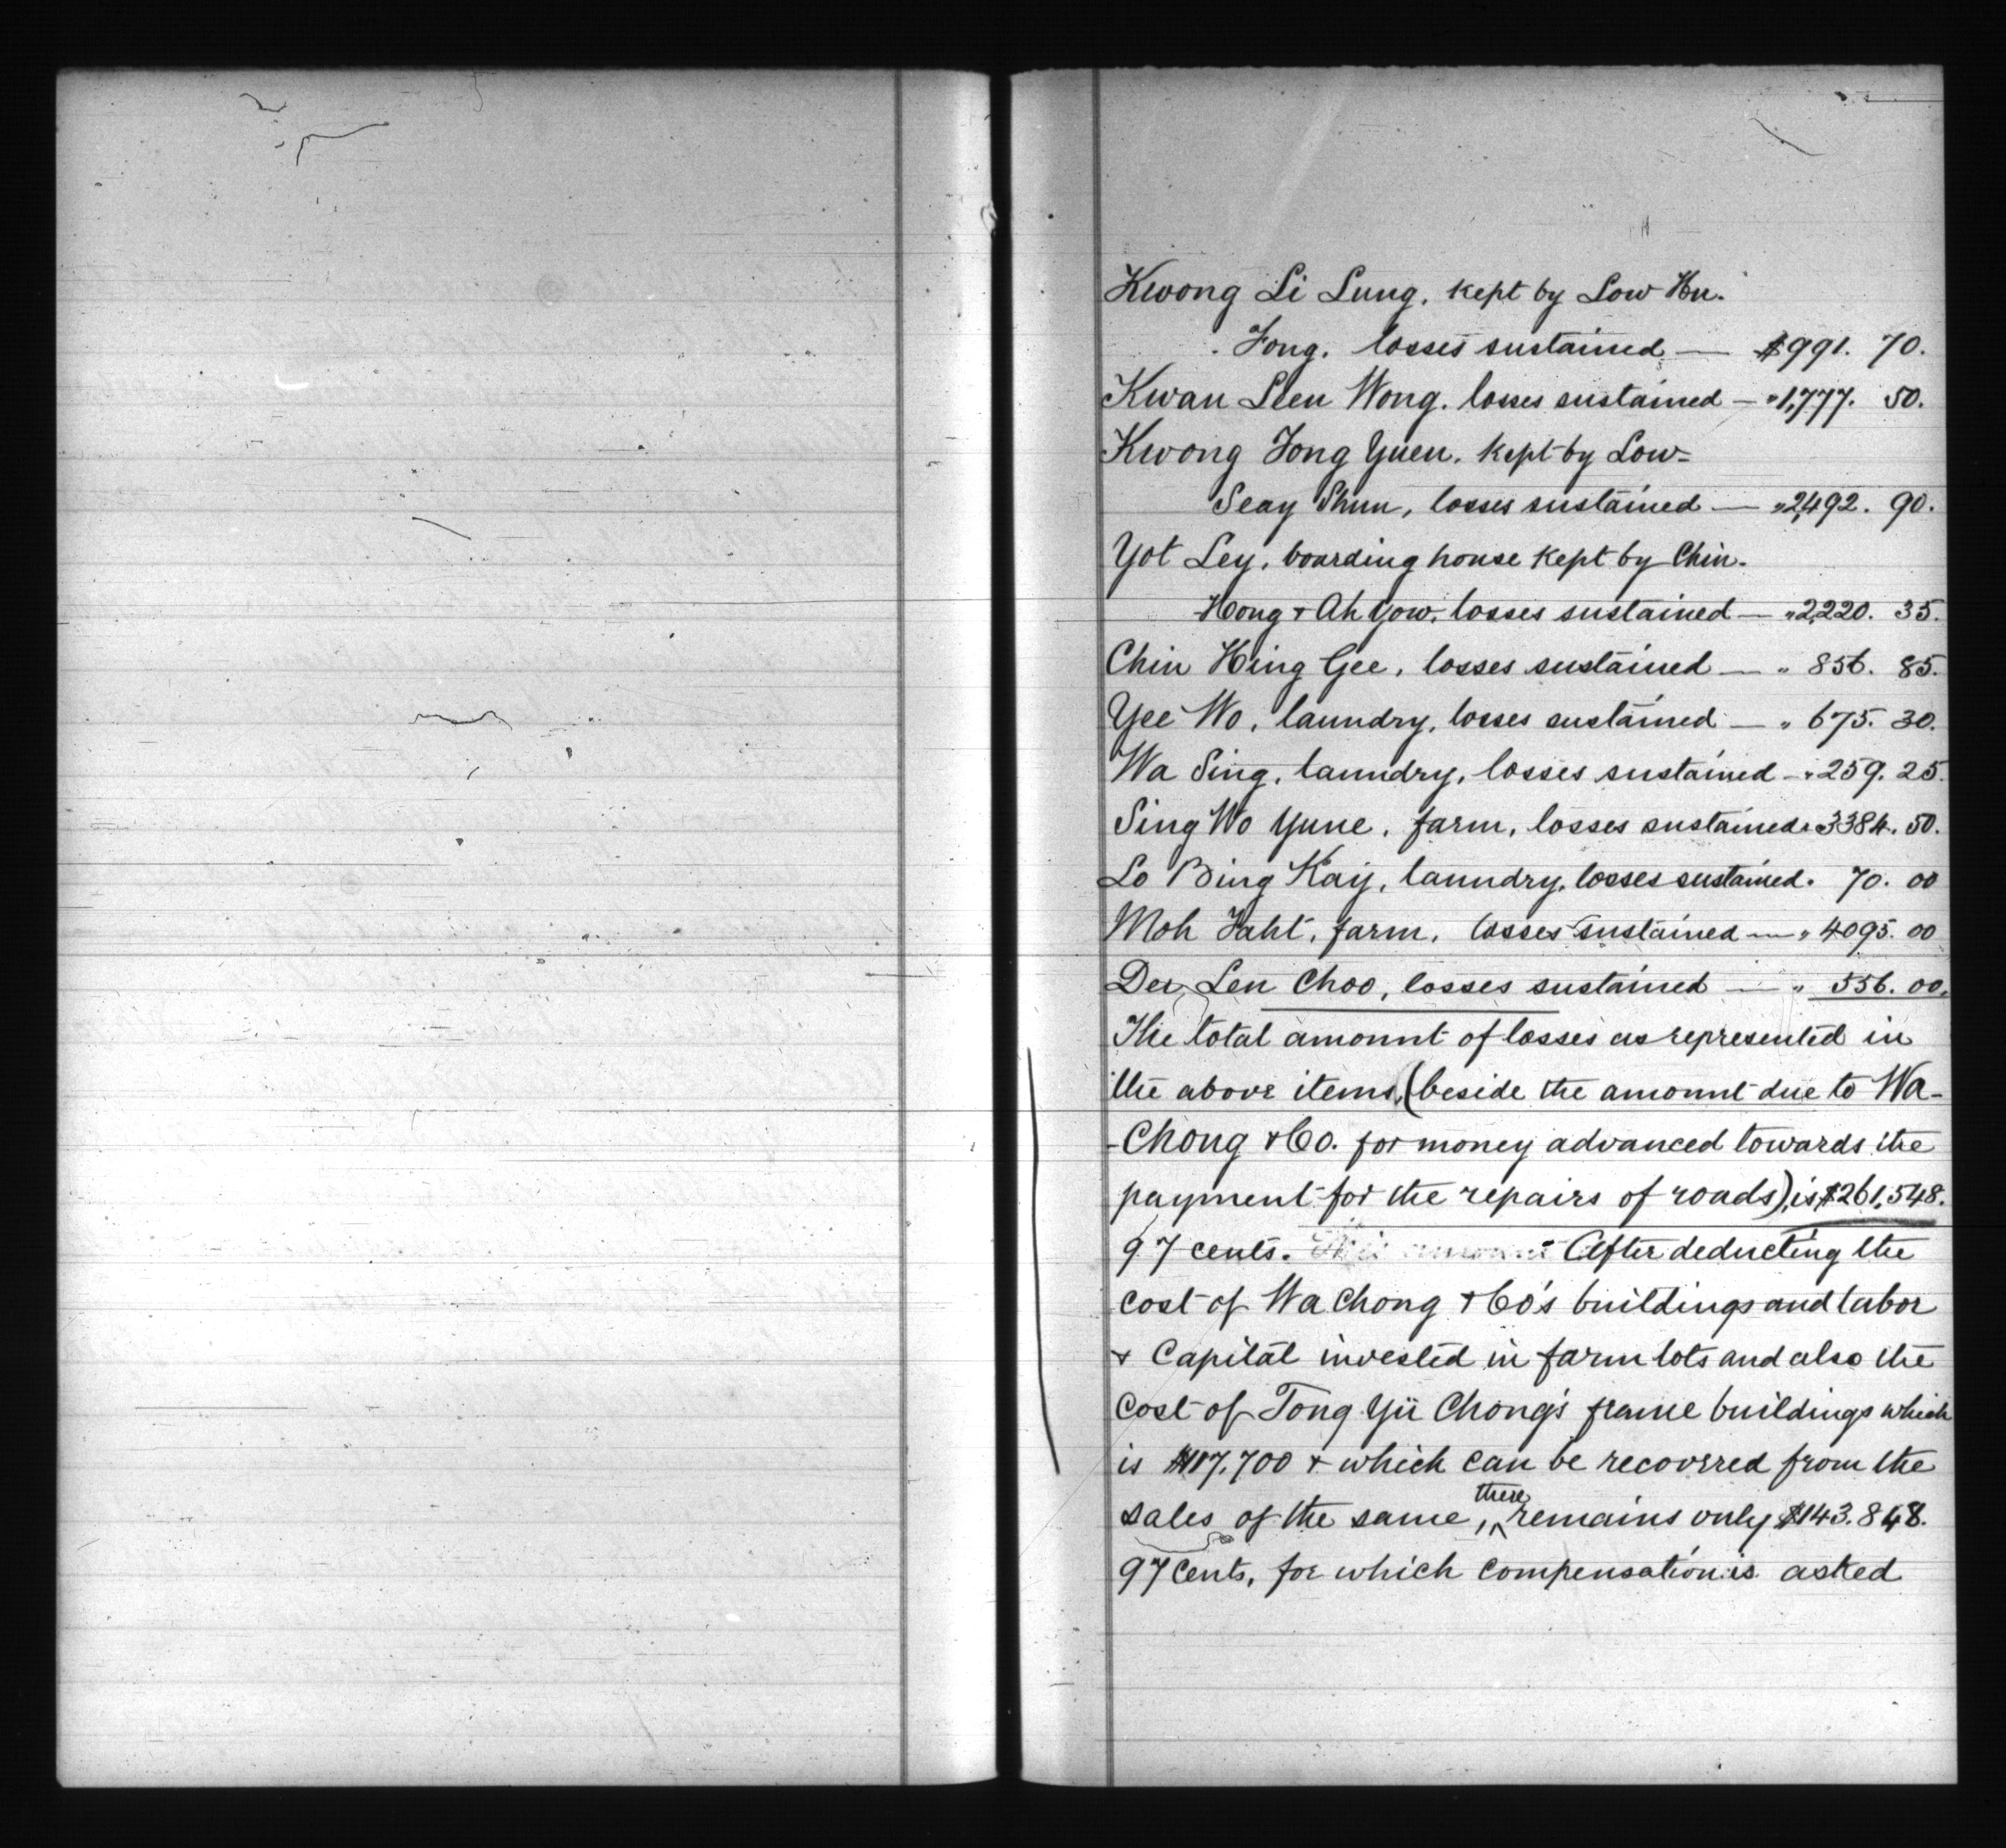 Kwong Li Lung, kept by Low Hu-
Fong, losses sustained — $991. 70.
Kwan Leen Wong, losses sustained — "1,777. 50.
Kwong Fong Yuen, kept by Low-
Seay Shun, losses sustained — "2,492. 90.
Yot Ley, boarding house kept by Chin-
Hong & Ah Yow, losses sustained — "2,220. 35.
Chin Hing Gee, losses sustained — " 856. 85.
Yee Wo, laundry, losses sustained — " 675. 30.
Wa Sing, laundry, losses sustained — " 259. 25.
Sing Wo Yune, farm, losses sustained " 3384. 50.
Lo Bing Kay, laundry, losses sustained. 70. 00
Moh Faht, farm, losses sustained — " 4095. 00
Der Len Choo, losses sustained — " 556. 00.
The total amount of losses as represented in
the above items, (beside the amount due to Wa-
-Chong & Co. for money advanced towards the
payment for the repairs of roads), is $261,548.
97 cents. After deducting the
cost of Wa Chong & Co's buildings and labor
& Capital invested in farm lots and also the
cost of Tong Yü Chong's frame buildings which
is $117,700 & which can be recovered from the
sales of the same, there remains only $143.848.
97 cents, for which compensation is asked